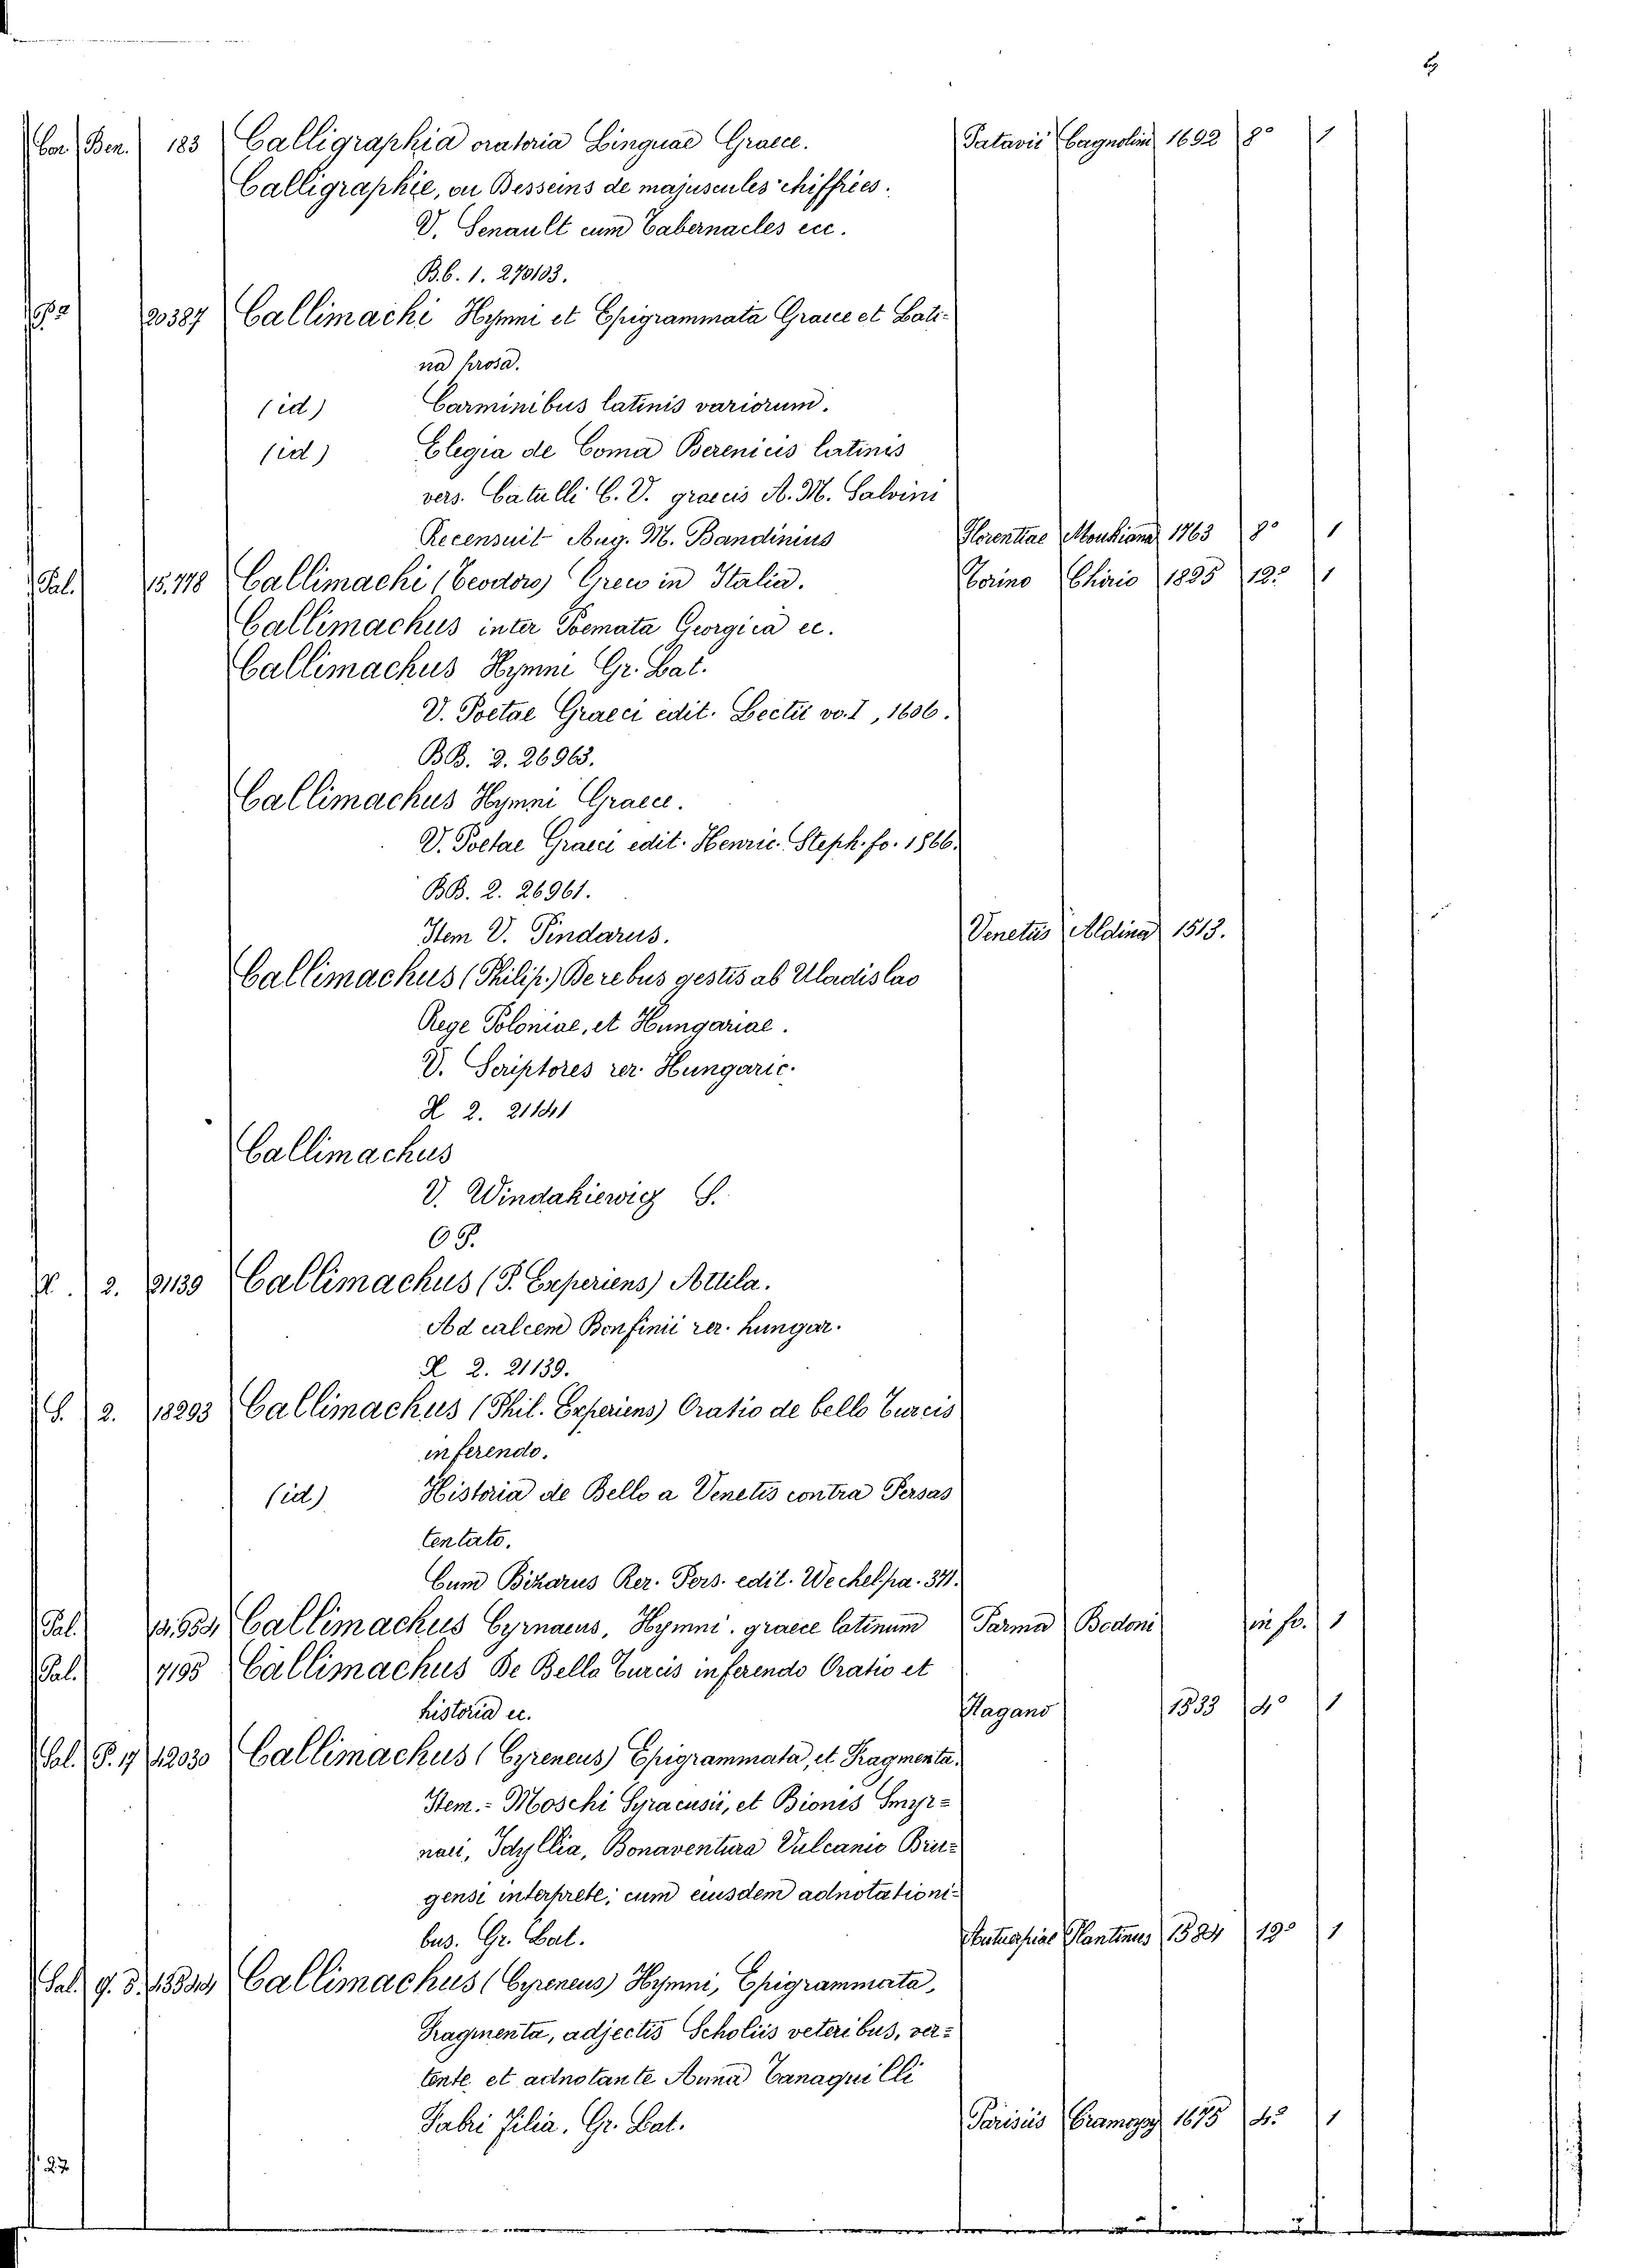 Cor. Ben. 183 Calligraphia oratoria Linguae Graece. Patavii Cagnolini 1692 8º 1
Calligraphie, ou Desseins de majuscules chiffrées.
V. Senault cum Tabernacles ecc.
B.b. 1. 270103.
20387 Callimachi Hymni et Epigrammata Graece et Lati-
na prosa.
(id) Carminibus latinis variorum.
(id) Elegia de Coma Berenicis latinis
vers. Catulli C. V. graecis A. M. Salvini
Recensuit Aug. M. Bandinius Florentiae Moukiana 1763 8º 1
Pal. 15.778 Callimachi (Teodoro) Greco in Italia. Torino Chirio 1825 12º 1
Callimachus inter Poemata Georgica ec.
Callimachus Hymni Gr. Lat.
V. Poetae Graeci edit. Lectii vo. I, 1606.
BB. 2. 26963.
Callimachus Hymni Graece.
V. Poetae Graeci edit. Henric. Steph. fo. 1866.
BB. 2. 26961.
Item V. Pindarus. Venetiis Aldina 1513.
Callimachus (Philip.) De rebus gestis ab Uladislao
Rege Poloniae, et Hungariae.
V. Scriptores rer. Hungaric.
H 2. 21141
Callimachus
V. Windakiewicz S.
6 P.
H. 2. 21139 Callimachus (P. Experiens) Attila.
Ad calcem Bonfinii rer. hungar.
H 2. 21139.
S. 2. 18293 Callimachus (Phil. Experiens) Oratio de bello Turcis
inferendo.
(id) Historia de Bello a Venetis contra Persas
tentato.
Cum Bizarus Rer. Pers. edit. Wechel pa. 371.
Pal. 14.954 Callimachus Cyrnaeus, Hymni. graece latinum Parma Bodoni in fo. 1
Pal. 7195 Callimachus De Bello Turcis inferendo Oratio et
historia ec. Hagano 1533 4º 1
Pal. P. 17 12030 Callimachus (Cyreneus) Epigrammata, et Fragmenta.
Item. - Moschi Syracusii, et Bionis Smyr-
naei, Idyllia, Bonaventura Vulcanio Bru-
gensi interprete, cum eiusdem adnotationi-
bus. Gr. Lat. Antuerpiae Plantinus 1584 12º 1
Pal. Callimachus (Cyreneus) Hymni, Epigrammata,
Fragmenta, adjectis Scholiis veteribus, ver-
tente et adnotante Anna Tanaquilli
Fabri Filia. Gr. Lat. Parisiis Cramozy 1675 4º 1
27